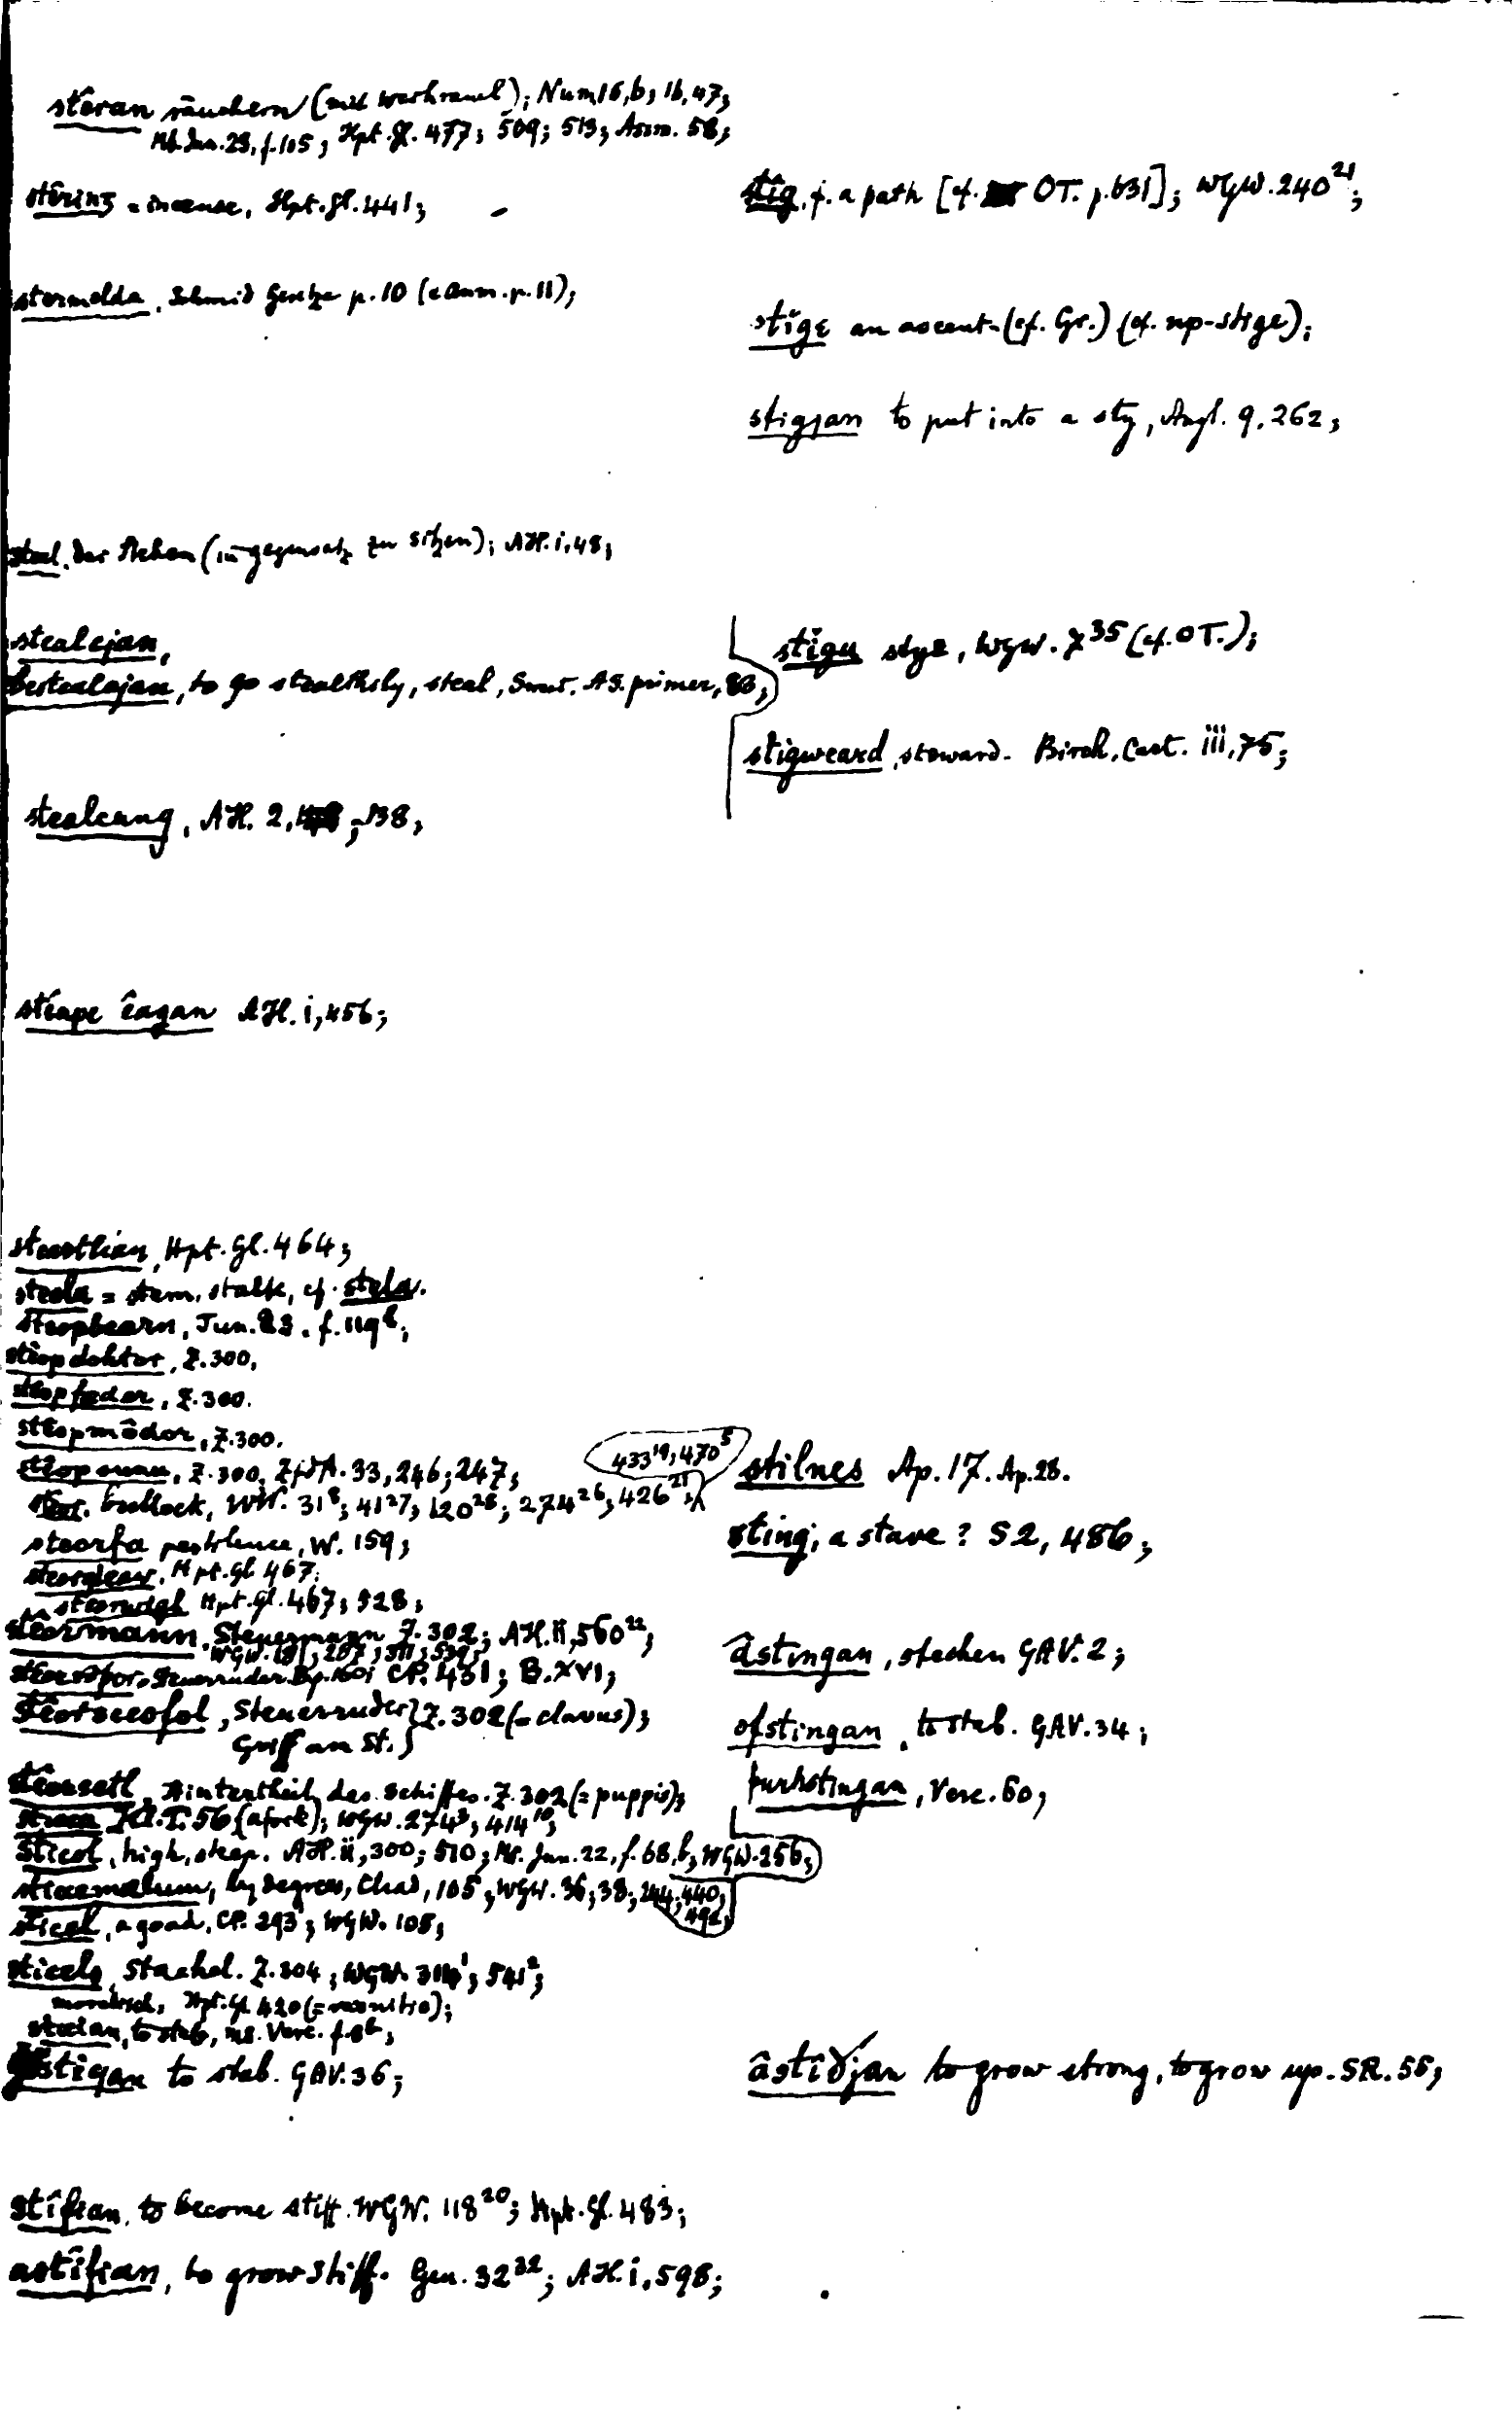 stêran räuchern (mit Weihrauch); Num 16,6; 16,47;
Ms. Jun. 23, f. 105; Hpt. Gl. 477; 509; 513; Assm. 58;
stêring = incense, Hpt. Gl. 441;
stermelda, Schmid Gesetze p. 10 (c anm. p. 11);
steal, das Stehen (im gegensatz zu sitzen); AH. i, 48;
stealcjan,
bestealcjan, to go stealthily, steal, Sweet. AS. primer, 83;
stealcung, AH. 2, 138;
stêape êagan AH. i, 456;
steartlian, Hpt. Gl. 464;
steola = stem, stalk, cf. stela.
stêopbearn, Jun. 23. f. 119b;
stêopdohtor, Z. 300.
stêopfæder, Z. 300.
stêopmôdor, Z. 300.
stêopsunu, Z. 300, ZfdA. 33, 246; 247;
433 19; 470 5
stêor, bullock, WW. 31 8; 41 27; 120 28; 274 26; 426 21;
steorfa pestilence, W. 159;
stêorglêaw, Hpt. Gl. 467;
stêorwigl Hpt. Gl. 467; 928;
stêormann, Steuermann Z. 302; AH. ii, 560 22;
WGW. 181; 287; 311; 539;
stêorrôþor, Steuerruder. Bp. 160; CP. 431; B. XVI;
stêorsceofol, Steuerruder} Z. 302 (= clavus);
Griff an St.}
stêorsetl, Hintertheil des Schiffes. Z. 302 (= puppis);
Kl. T. 56 (a fork); WGW. 274 3; 414 10;
sticol, high, steep. AH. ii, 300; 510; Ms. Jun. 22, f. 68, b; WGW. 256;
sticcemælum, by degrees, Chad, 105; WGW. 36; 38; 244; 440;
492;
sticel, a goad, CP. 293; WGW. 105;
sticels Stachel. Z. 304; WGW. 314 1; 541 2;
moralisch, Hpt. Gl. 420 (= monitio);
stician, to stab, ms. Verc. f. 8b;
stigan to stab. GAV. 36;
stîfian, to become stiff. WGW. 118 20; Hpt. Gl. 483;
astîfian, to grow stiff. Gen. 32 32; AH. i, 598;
stîg, f. a path [cf. OT. p. 631]; WGW. 240 21;
stîge an ascent (cf. Gr.) (cf. up-stige);
stigjan to put into a sty, Angl. 9, 262;
stigu stye, WGW. X 35 (cf. OT.);
stigweard, steward. Birch, Cart. iii, 75;
stilnes Ap. 17. Ap. 28.
sting, a stave? S2, 486;
âstingan, stechen GAV. 2;
ofstingan, to stab. GAV. 34;
þurhstingan, Verc. 60;
âstîðjan to grow strong, to grow up. SR. 55;